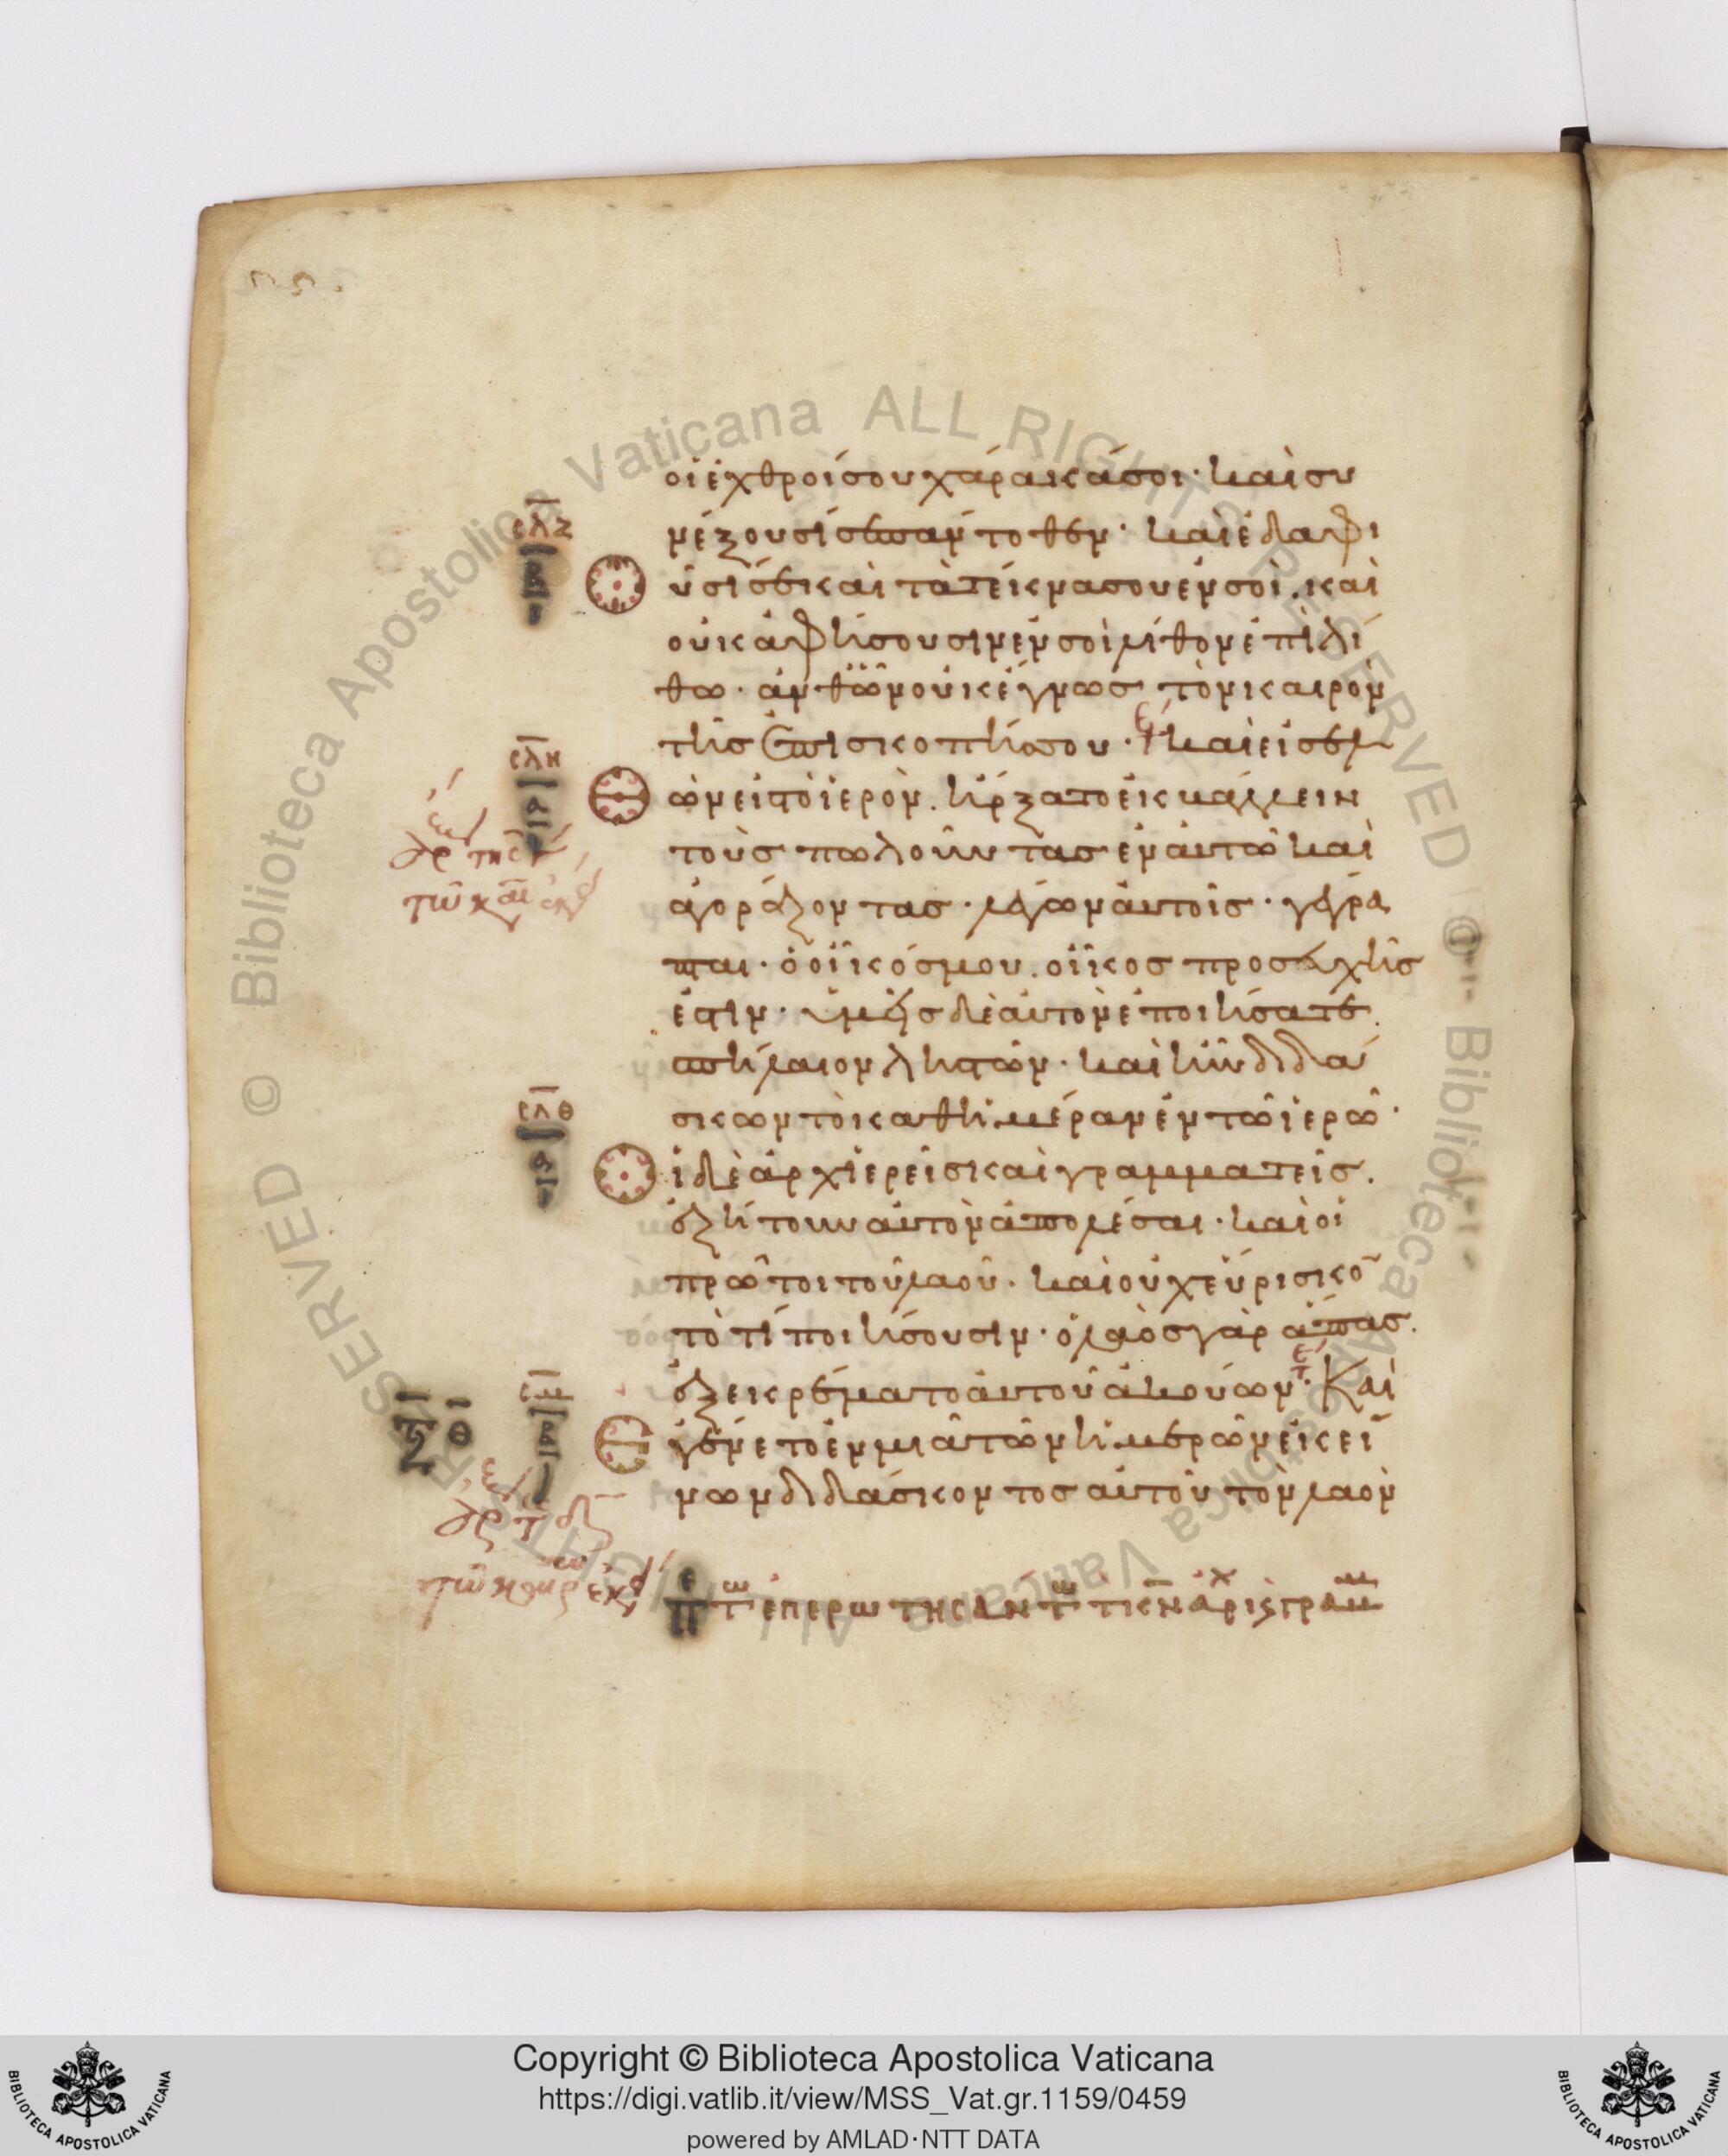 οἱ ἐχθροί σου χάρακά σοι· καὶ συ
νέξουσί σε πάντοθεν· καὶ ἐδαφι
οῦσί σε καὶ τὰ τέκνα σου ἐν σοὶ. καὶ
οὐκ ἀφήσουσιν ἐν σοὶ λίθον ἐπὶ λί
θω· ἀνθ ὧν οὐκ ἔγνως τὸν καιρὸν
τῆς ἐπισκοπῆς σου· καὶ εἰσελ
ὼν εἰς τὸ ἱερὸν. ἤρξατο ἐκβάλλειν
τοὺς πωλοῦντας ἐν αὐτῶ καὶ
ἀγοράζοντας· λέγων αὐτοῖς· γέγρα
πται· ὁ οἶκός μου. οἶκος προσευχῆς
ἐστιν· ὑμεῖς δὲ αὐτὸν ἐποιήσατε
σπήλαιον ληστῶν· καὶ ἦν διδά
σκων τὸ καθ ἡμέραν ἐν τῶ ἱερῶ·
ἱ δὲ ἀρχιερεῖς καὶ γραμματεῖς.
ἐζήτουν αὐτὸν ἀπολέσαι· καὶ οἱ
πρῶτοι τοῦ λαοῦ· καὶ οὐχ εὕρισκο
τὸ τί ποιήσουσιν· ὁ λαὸς γὰρ ἅπας.
ἐξεκρέματο αὐτοῦ ἀκούων· Καὶ
ἐγένετο ἐν μιᾶ τῶν ἡμερῶν ἐκεί
νων διδάσκοντος αὐτοῦ τὸν λαὸν
σλζ
σλη
σλθ
σμ
Copyright © Biblioteca Apostolica Vaticana
https://digi.vatlib.it/view/MSS_Vat.gr.1159/0459
powered by AMLAD·NTT DATA
BIBLIOTECA APOSTOLICA VATICANA
BIBLIOTECA APOSTOLICA VATICANA